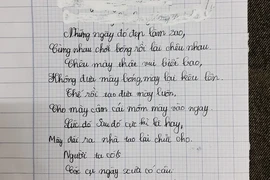 Những ngày đó đẹp lắm sao,
Cùng nhau chơi bóng rồi lại chêu nhau
Chêu mày thác vui biết bao,
Không đưa mày bóng, mày lại kêu lên.
Thế rồi tao đưa mày luôn,
Cho mày cầm cái mồm mày vào ngay
Lúc đó cực kì là hay,
Mày dãi ra nhà tao lại chửi cho.
Người ta có
cự ngày xưa có câu.